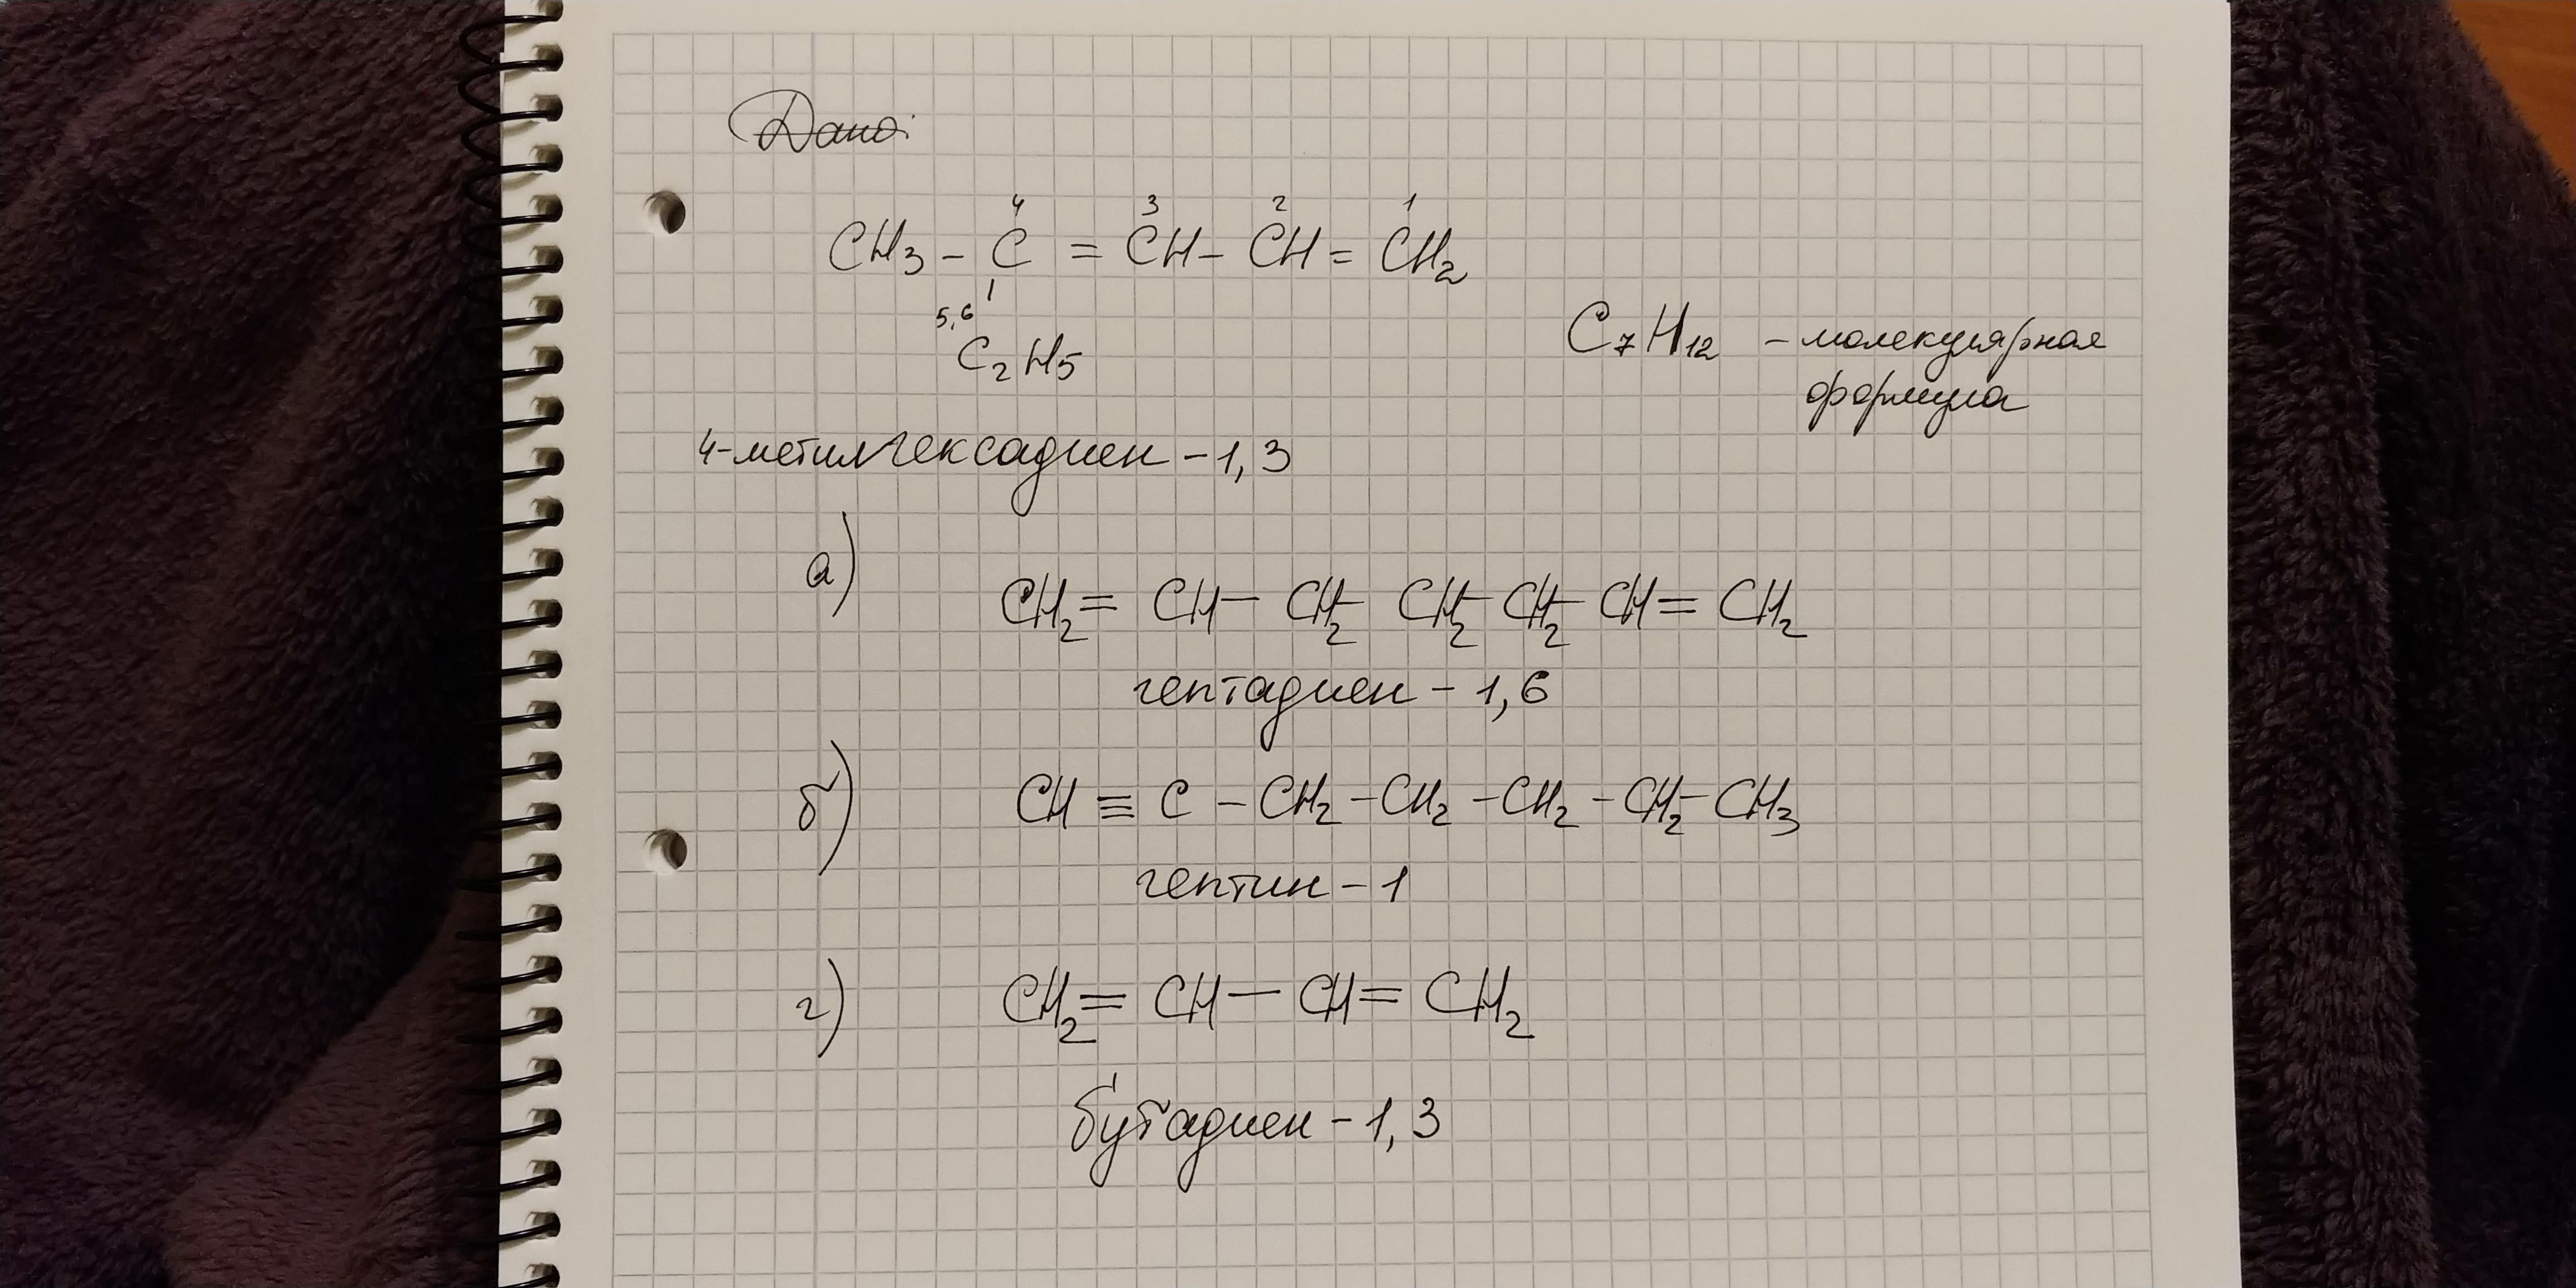 Дано:
4 3 2 1
CH₃ – C = CH – CH = CH₂
5,6
C₂H₅
C₇H₁₂ – молекулярная
формула
4-метилгексадиен – 1, 3
а) CH₂ = CH – CH₂ – CH₂ – CH₂ – CH = CH₂
гептадиен – 1, 6
б) CH ≡ C – CH₂ – CH₂ – CH₂ – CH₂ – CH₃
гептин – 1
г) CH₂ = CH – CH = CH₂
бутадиен – 1, 3